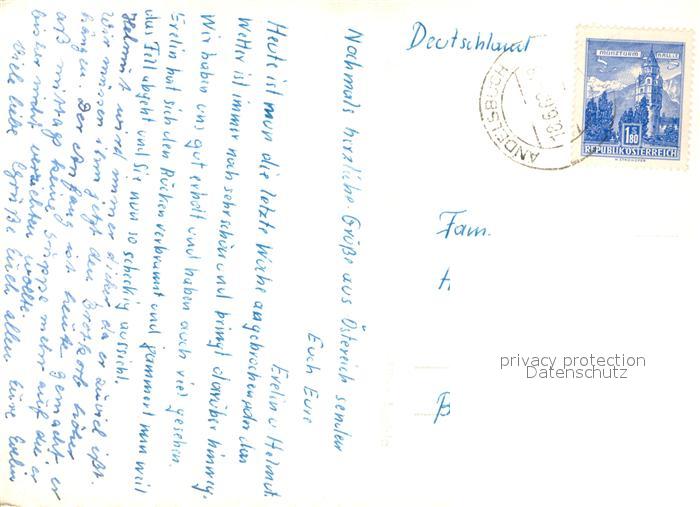 Nochmals herzliche Grüße aus Österreich senden
Euch Eure
Evelin u Helmut.
Heute ist nun die letzte Woche angebrochen, aber das
Wetter ist immer noch sehr schön und bringt darüber hinweg.
Wir haben uns gut erholt und haben auch viel gesehen.
Evelin hat sich den Rücken verbrannt und jammert nun weil
das Fell abgeht und Sie nun so scheckig aussieht.
Helmut wird immer dicker da er zuviel ißt.
Wir müssen ihm jetzt den Brotkorb höher
hängen. Der Anfang ist heute gemacht, er
aß mittags keine Suppe mehr auf die er
bisher nicht verzichten wollte.
Viele liebe Grüße Euch allen Eure Evelin
Deutschland
ANDELSBUCH
MÜNZTURM HALL I.T.
1.80
S
REPUBLIK ÖSTERREICH
Fam.
privacy protection
Datenschutz